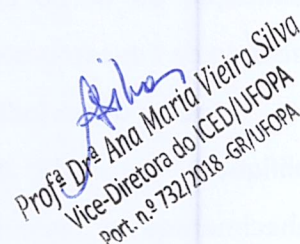 Silva
Profª Drª Ana Maria Vieira Silva
Vice-Diretora do ICED/UFOPA
Port. n.º 732/2018 -GR/UFOPA